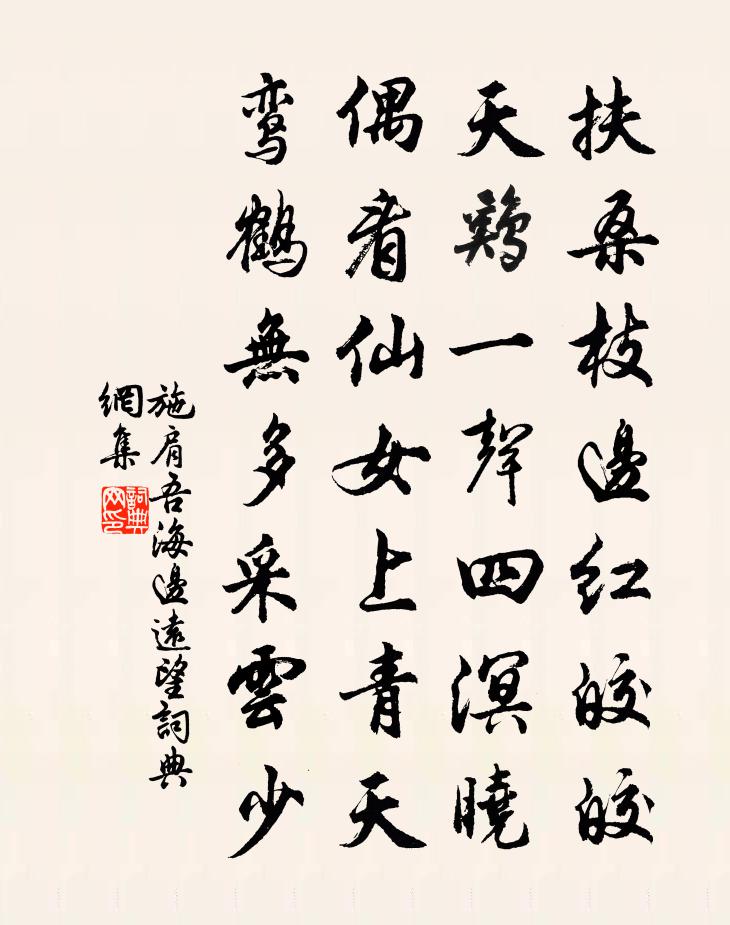 扶桑枝邊紅皎皎
天鷄一聲四溟曉
偶看仙女上青天
鸾鶴無多采雲少
施肩吾海邊遠望詞典
網集
詞典網印